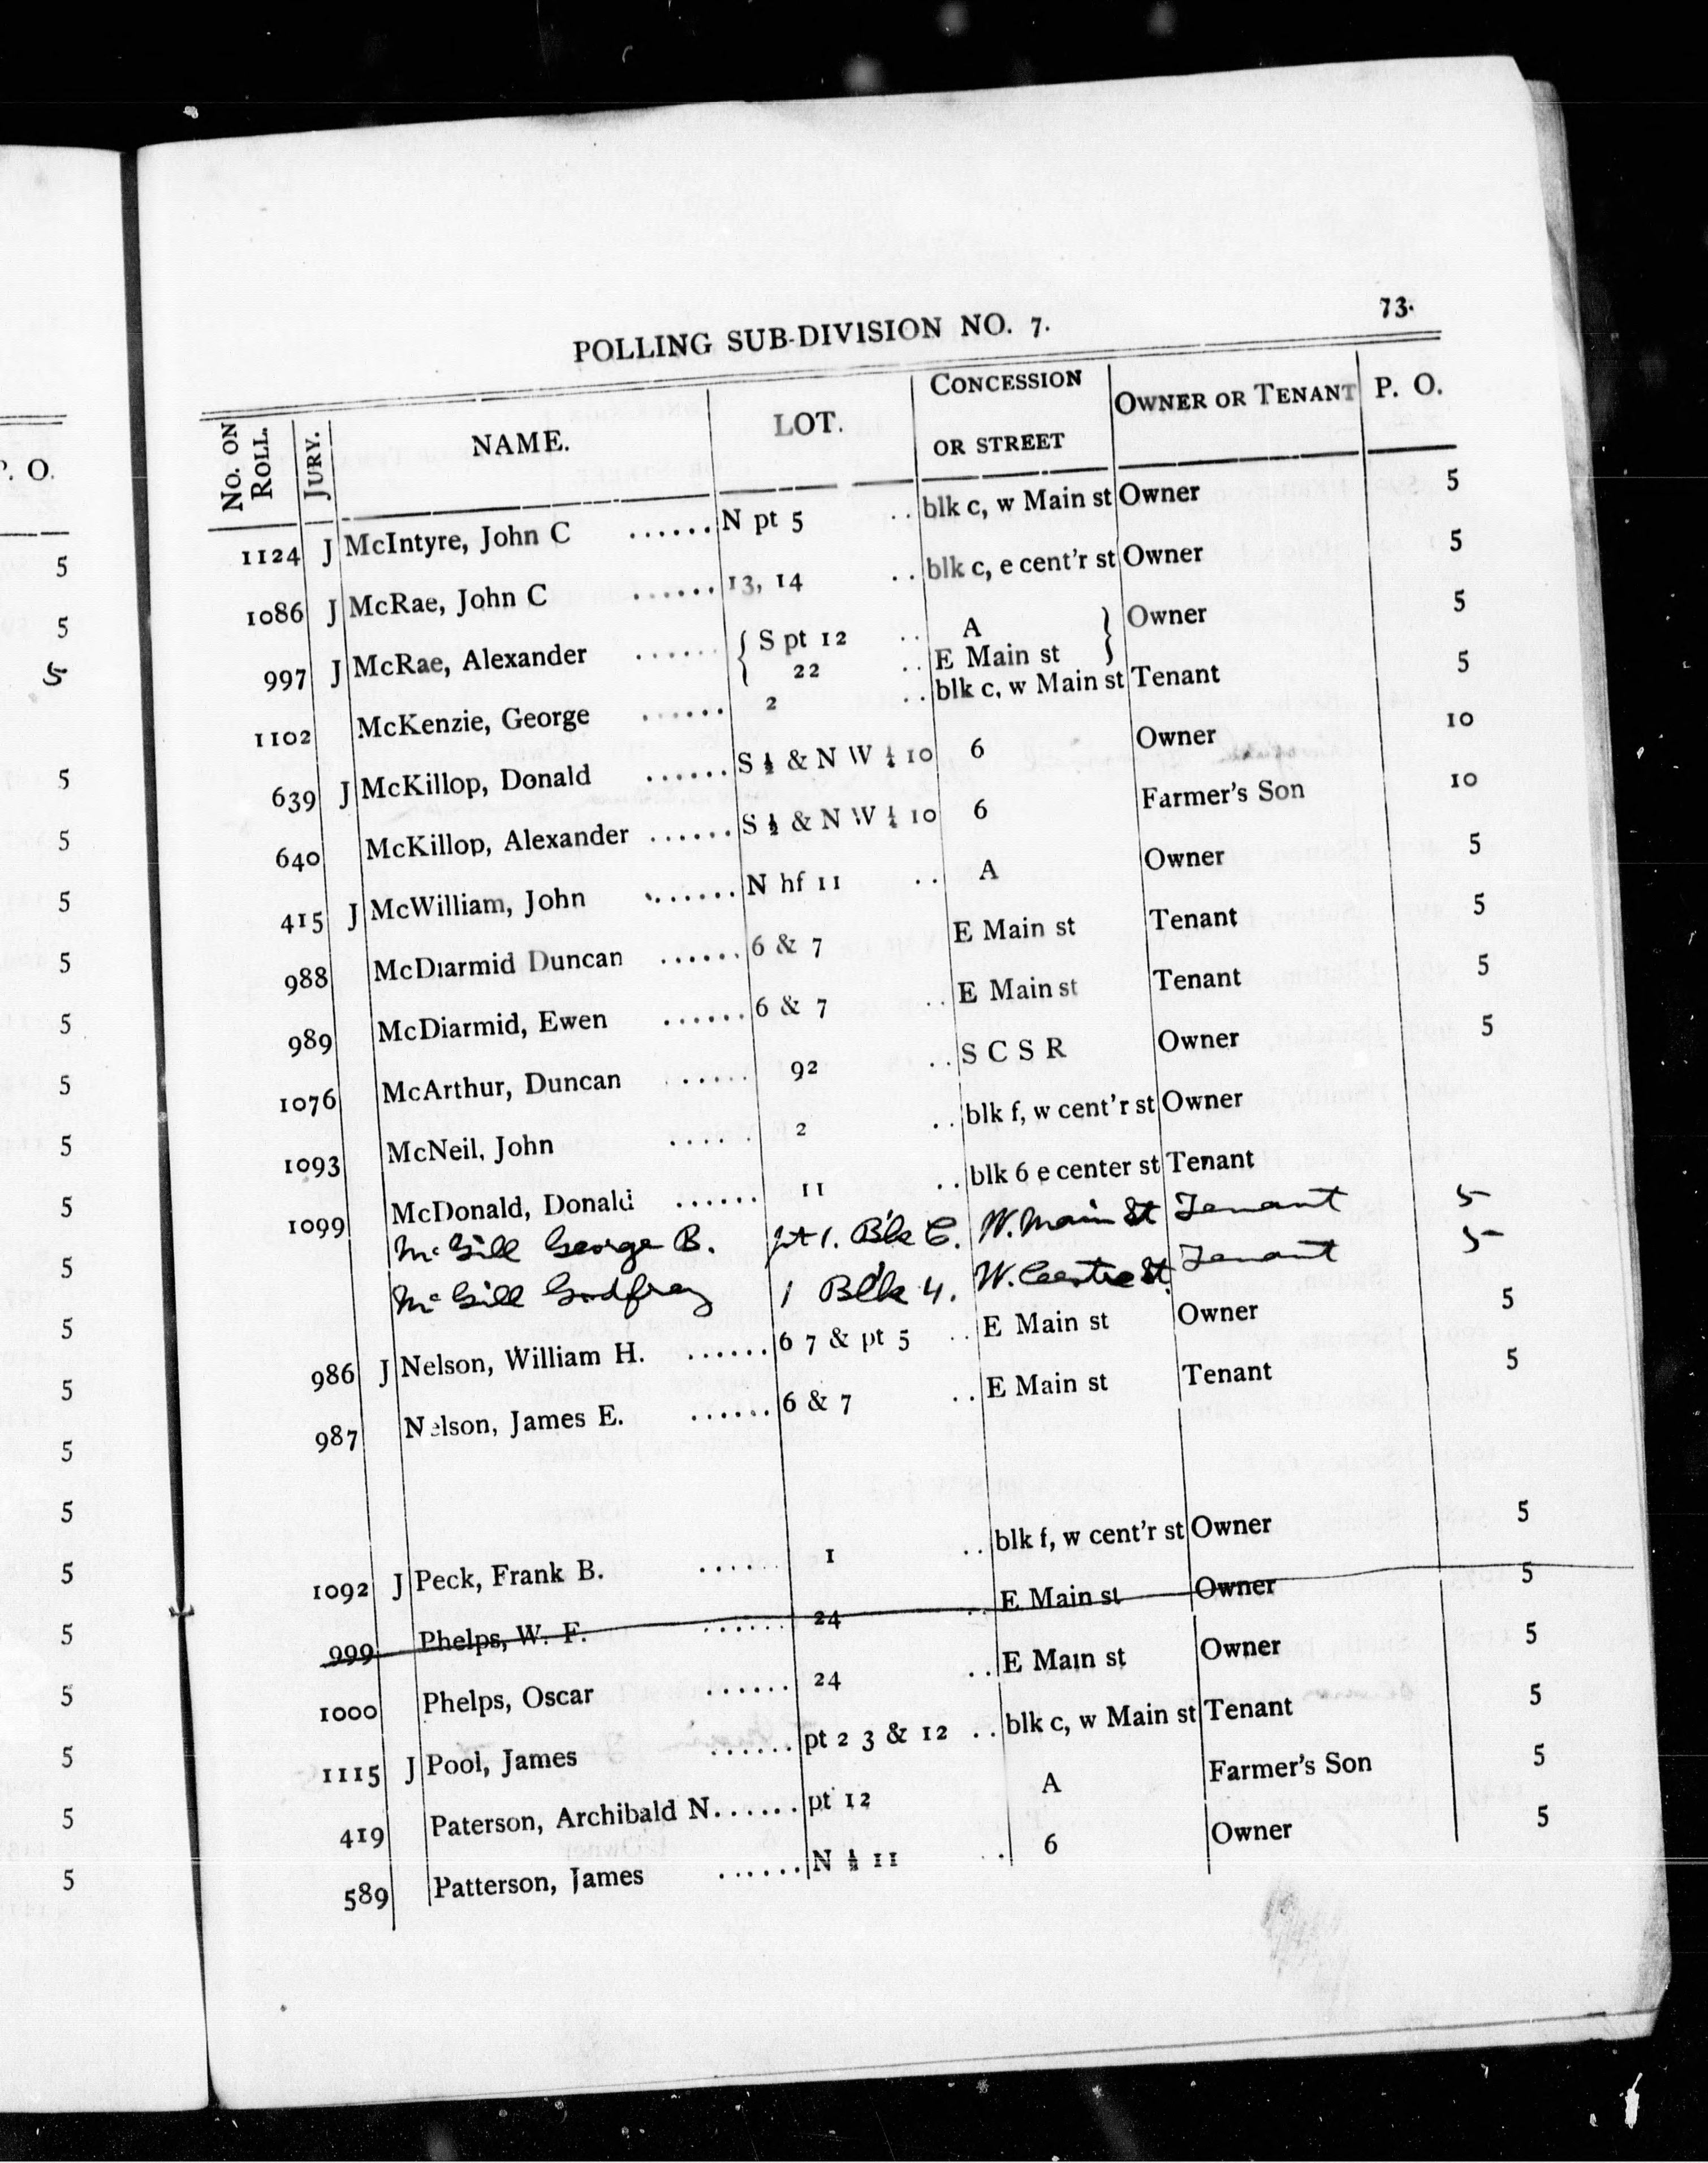 73.
POLLING SUB-DIVISION NO. 7.
No. ON ROLL. JURY. NAME. LOT. CONCESSION OR STREET OWNER OR TENANT P. O.
1124 J McIntyre, John C ...... N pt 5 .. blk c, w Main st Owner 5
1086 J McRae, John C ...... 13, 14 .. blk c, e cent'r st Owner 5
997 J McRae, Alexander ...... { S pt 12 .. A } Owner 5
22 .. E Main st
1102 McKenzie, George ...... 2 .. blk c, w Main st Tenant 5
639 J McKillop, Donald ...... S ½ & N W ¼ 10 6 Owner 10
640 McKillop, Alexander ...... S ½ & N W ¼ 10 6 Farmer's Son 10
415 J McWilliam, John ...... N hf 11 .. A Owner 5
988 McDiarmid Duncan ...... 6 & 7 E Main st Tenant 5
989 McDiarmid, Ewen ...... 6 & 7 .. E Main st Tenant 5
1076 McArthur, Duncan ..... 92 .. S C S R Owner 5
1093 McNeil, John ..... 2 .. blk f, w cent'r st Owner
1099 McDonald, Donald ...... 11 .. blk 6 e center st Tenant
McGill George B. pt 1. Blk C. W. Main St Tenant 5
McGill Godfrey 1 Blk 4. W. Centre St. Tenant 5
986 J Nelson, William H. ...... 6 7 & pt 5 .. E Main st Owner 5
987 Nelson, James E. ...... 6 & 7 .. E Main st Tenant 5
1092 J Peck, Frank B. ...... 1 .. blk f, w cent'r st Owner 5
999 Phelps, W. F. ...... 24 .. E Main st Owner 5
1000 Phelps, Oscar ...... 24 .. E Main st Owner 5
1115 J Pool, James ...... pt 2 3 & 12 .. blk c, w Main st Tenant 5
419 Paterson, Archibald N...... pt 12 A Farmer's Son 5
589 Patterson, James ...... N ½ 11 .. 6 Owner 5
P. O.
5
5
5
5
5
5
5
5
5
5
5
5
5
5
5
5
5
5
5
5
5
5